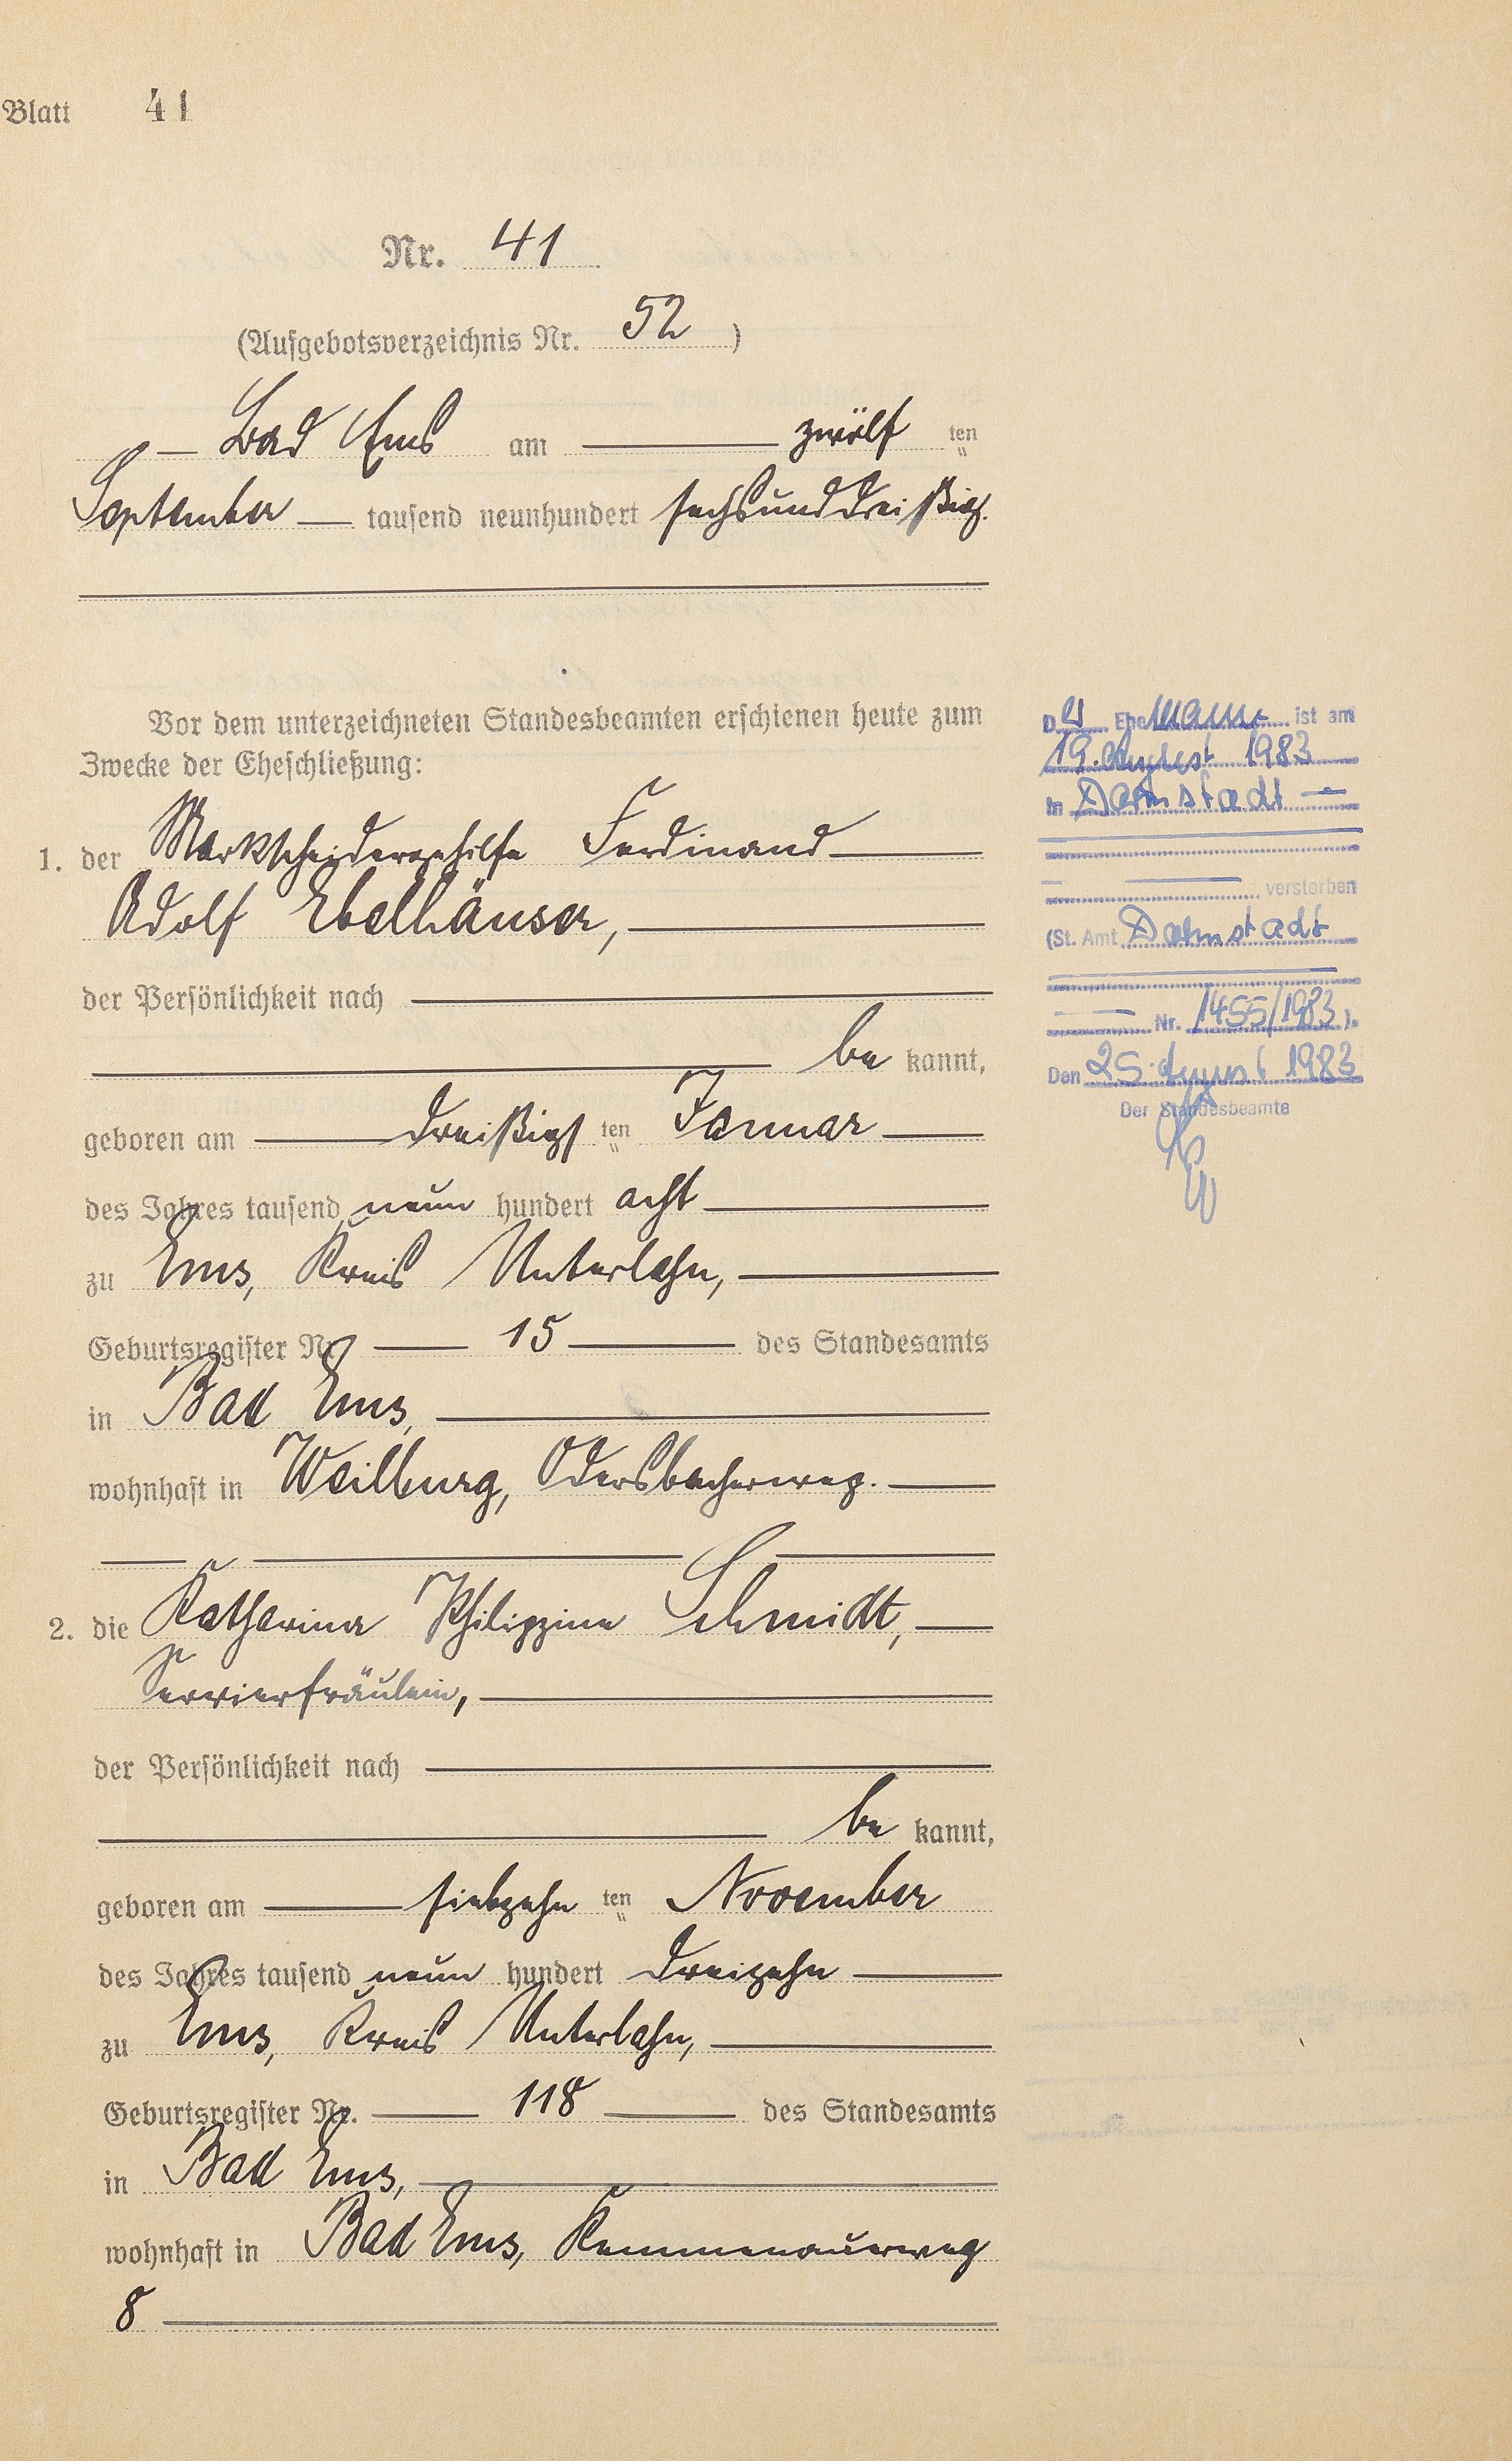 Blatt 41
Nr. 41
(Aufgebotsverzeichnis Nr. 52 )
Bad Ems am zwölf ten
September tausend neunhundert sechsunddreißig.
Vor dem unterzeichneten Standesbeamten erschienen heute zum
Zwecke der Eheschließung:
1. der Markscheidergehilfe Ferdinand
Adolf Ebelhäuser,
der Persönlichkeit nach
be kannt,
geboren am dreißigs ten Januar
des Jahres tausend neun hundert acht
zu Ems, Kreis Unterlahn,
Geburtsregister Nr. 15 des Standesamts
in Bad Ems,
wohnhaft in Weilburg, Odersbacherweg.
2. die Katharina Philippine Schmidt,
Servierfräulein,
der Persönlichkeit nach
be kannt,
geboren am siebzehn ten November
des Jahres tausend neun hundert dreizehn
zu Ems, Kreis Unterlahn,
Geburtsregister Nr. 118 des Standesamts
in Bad Ems,
wohnhaft in Bad Ems, Kemmenauerweg
8
Der Ehemann ist am
19. August 1983
in Darmstadt
verstorben
(St. Amt Darmstadt
Nr. 1455/1983 ).
Den 25. August 1983
Der Standesbeamte